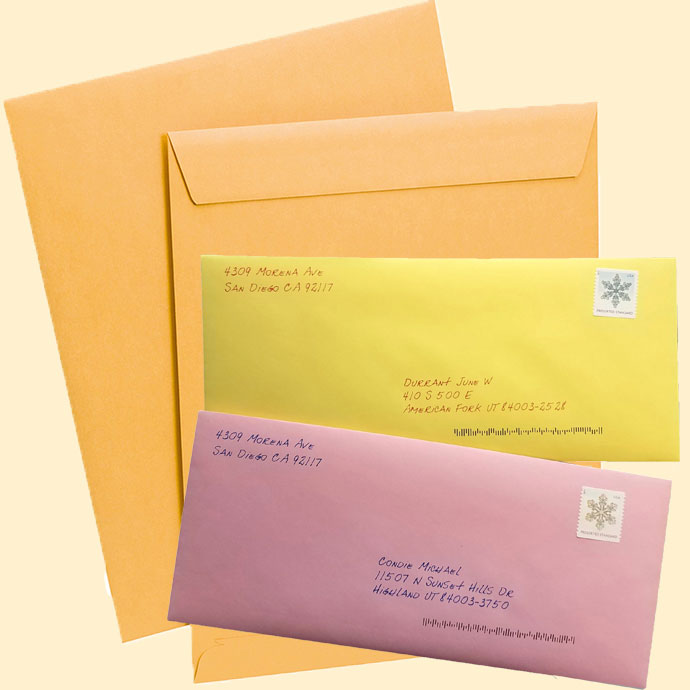 4309 MORENA AVE
SAN DIEGO CA 92117
DURRANT JUNE W
410 S 500 E
AMERICAN FORK UT 84003-2528
4309 MORENA AVE
SAN DIEGO CA 92117
CONDIE MICHAEL
11507 N SUNSET HILLS DR
HIGHLAND UT 84003-3750